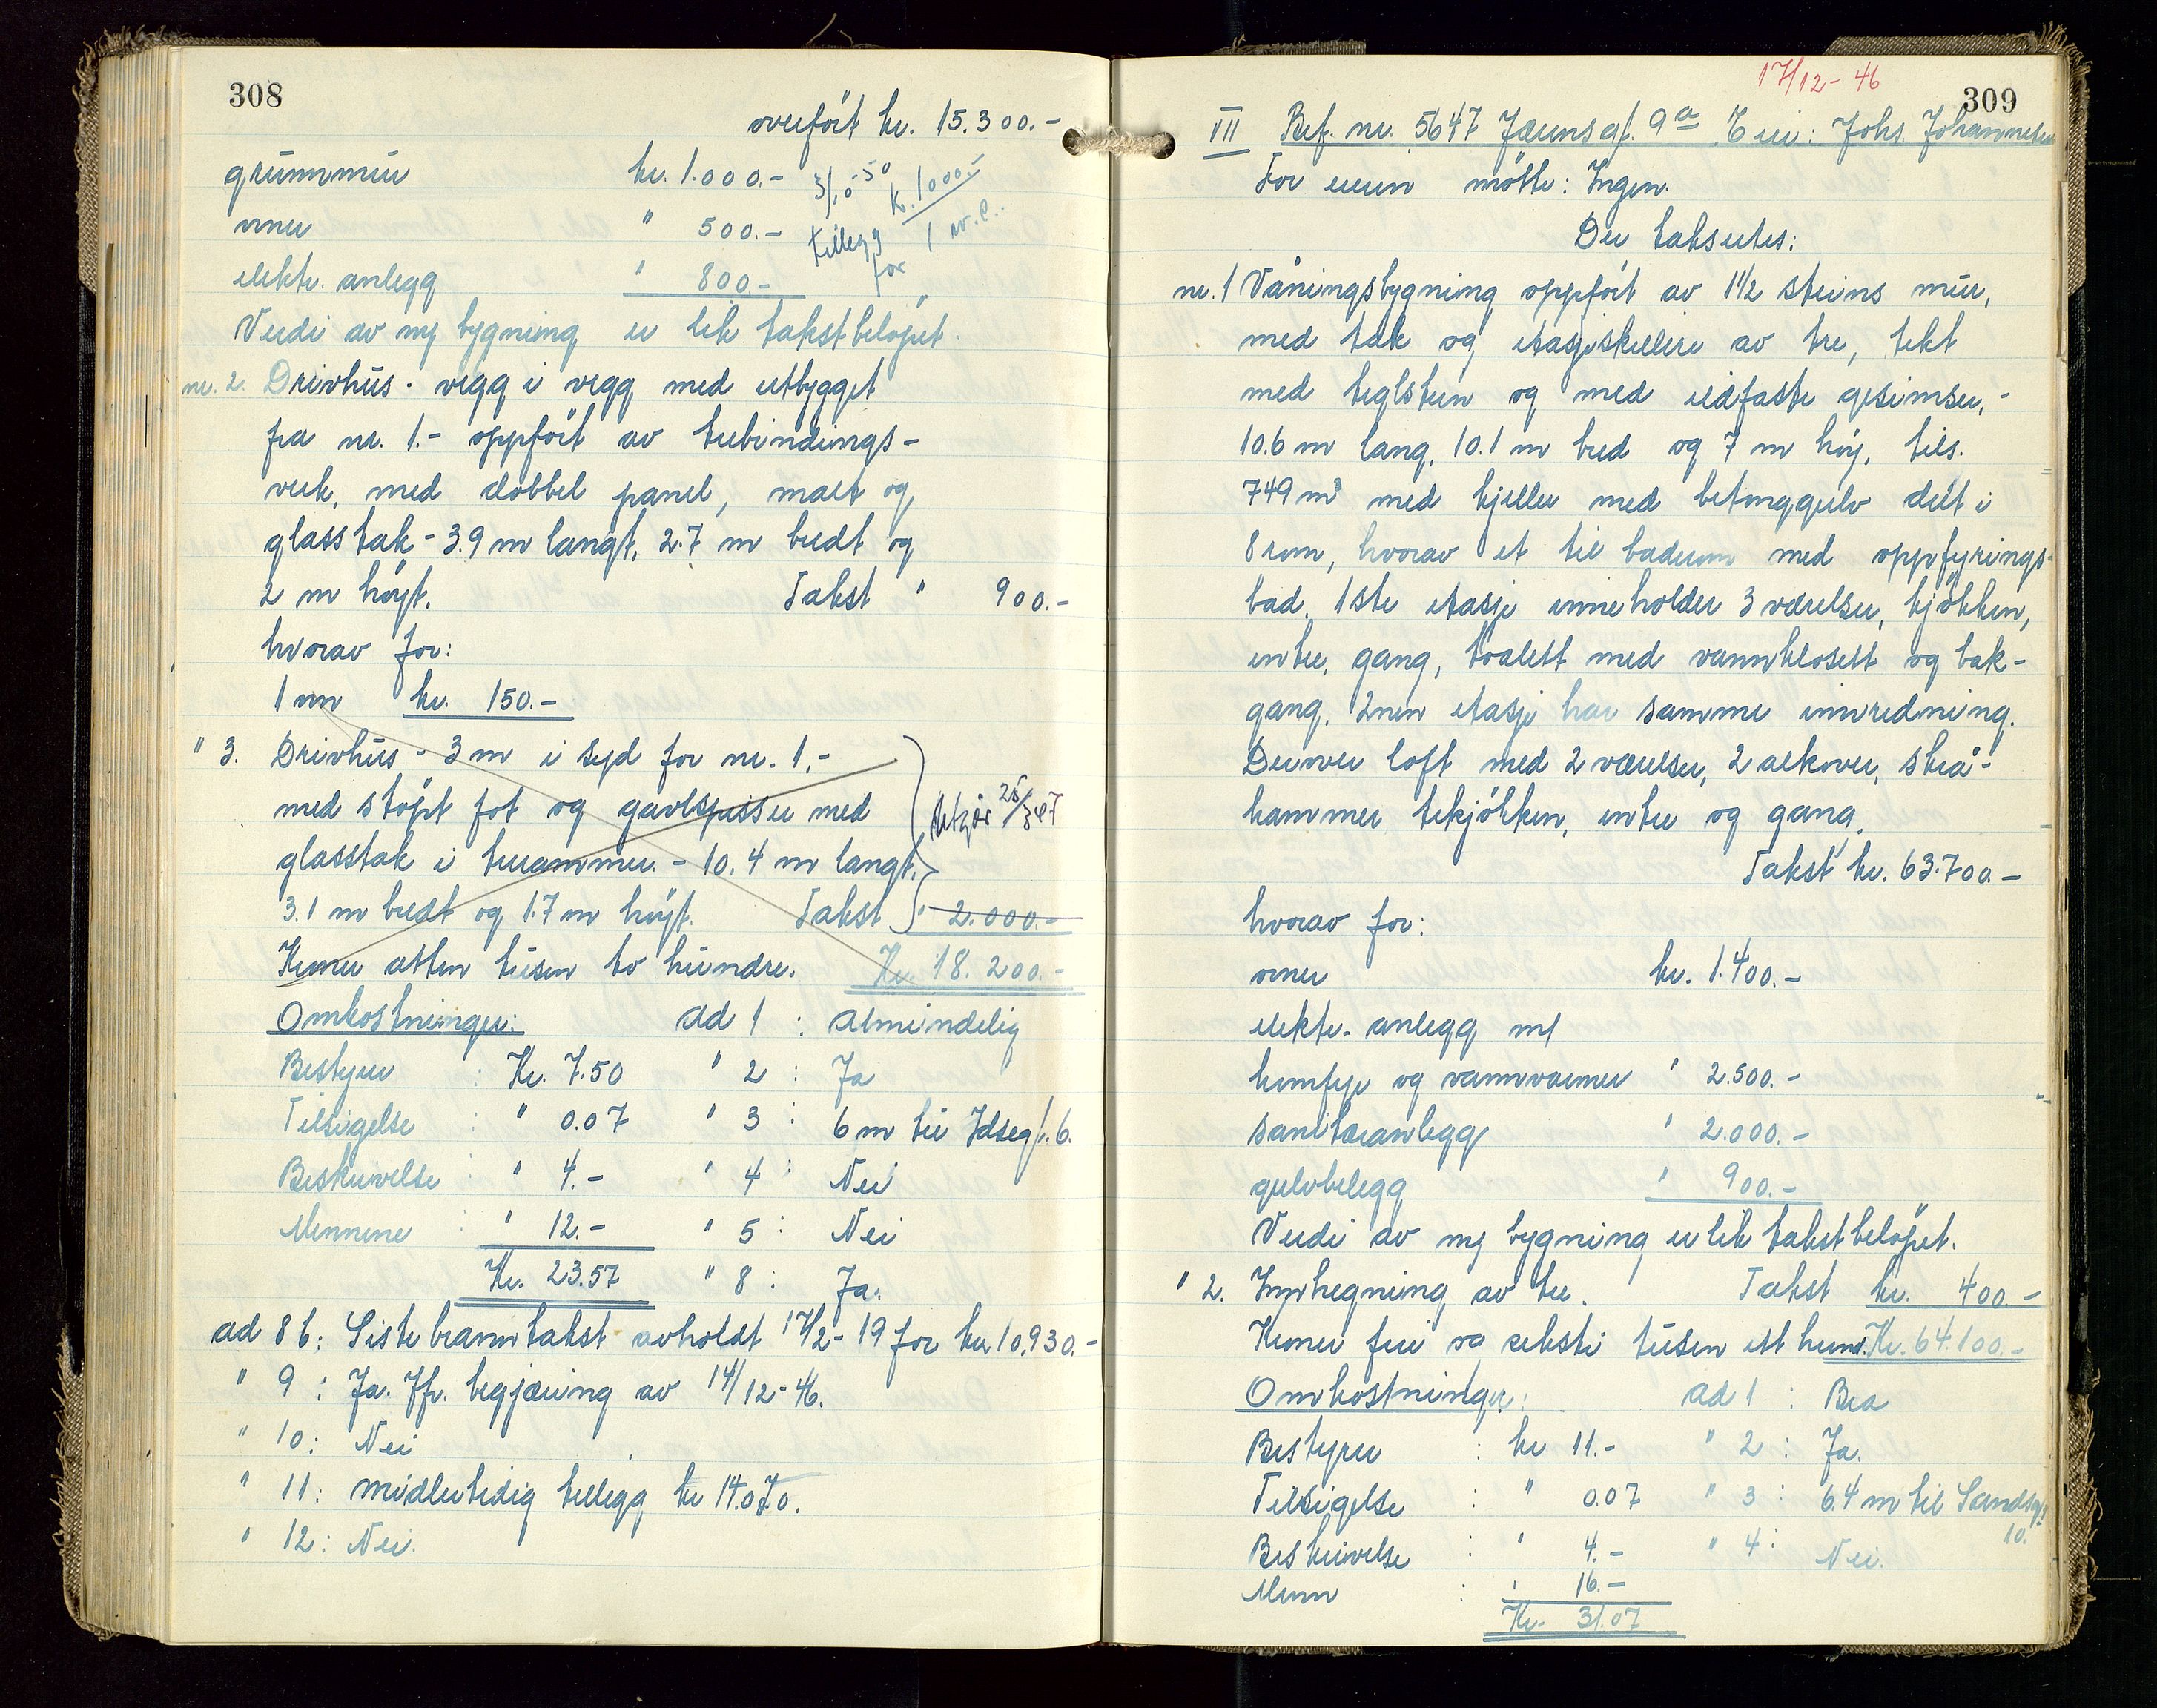 308
overført kr. 15.300.-
grunnmur kr. 1.000.-
ovner " 500.-
elektr. anlegg " 800.-
3/10-50
tillegg kr. 1000.-
for 1 w.c.
Verdi av ny bygning er lik takstbeløpet.
nr. 2. Drivhus - vegg i vegg med utbygget
fra nr. 1.- oppført av trebindings-
verk, med dobbel panel, malt og
glasstak - 3.9 m langt, 2.7 m bredt og
2 m høyt. Takst " 900.-
hvorav for:
1 ovn kr. 150.-
" 3. Drivhus - 3 m i syd for nr. 1,-
med støpt fot og gavlspisser med
glasstak i trerammer. - 10.4 m langt,
3.1 m bredt og 1.7 m høyt. Takst " 2.000.-
Utgår 25/3 47
Kroner atten tusen to hundre. Kr. 18.200.-
Omkostninger: ad 1 : Almindelig
Bestyrer : Kr. 7.50 " 2 : Ja
Tilsigelse : " 0.07 " 3 : 6 m til Idsegt. 6.
Beskrivelse : " 4.- " 4 : Nei
Mennene : " 12.- " 5 : Nei
Kr. 23.57 " 8 : Ja.
ad 8 b: Siste branntakst avholdt 17/2-19 for kr 10.930.-
" 9 : Ja. Jfr. begjæring av 14/12-46.
" 10: Nei
" 11: midlertidig tillegg kr 14.070.
" 12: Nei.
17/12-46
309
VII Brf. nr. 5647 Jærnsgt. 9a Eier: Johs. Johannesen
For eieren møtte: Ingen.
Der takseres:
nr. 1 Våningsbygning oppført av 1 1/2 steins mur,
med tak og etasjeskillere av tre, tekt
med teglstein og med ildfaste gesimser,-
10.6 m lang, 10.1 m bred og 7 m høy, tils.
749 m³ med kjeller med betonggulv delt i
8 rom, hvorav et til baderom med oppfyrings-
bad. 1ste etasje inneholder 3 værelser, kjøkken,
entre, gang, toalett med vannklosett og bak-
gang. 2nen etasje har samme innredning.
Derover loft med 2 værelser, 2 alkover, skrå-
kammer tekjøkken, entre og gang.
Takst kr. 63.700.-
hvorav for:
ovner kr. 1.400.-
elektr. anlegg m/
komfyr og vannvarmer " 2.500.-
sanitæranlegg " 2.000.-
gulvbelegg " 900.-
Verdi av ny bygning er lik takstbeløpet.
" 2. Innhegning av tre. Takst kr. 400.-
Kroner fire og seksti tusen ett hund. Kr. 64.100.-
Omkostninger: ad 1 : Bra
Bestyrer : kr 11.- " 2 : Ja.
Tilsigelse : " 0.07 " 3 : 6.4 m til Sandsgt. 10.
Beskrivelse : " 4.- " 4 : Nei.
Menn : " 16.-
Kr. 31.07